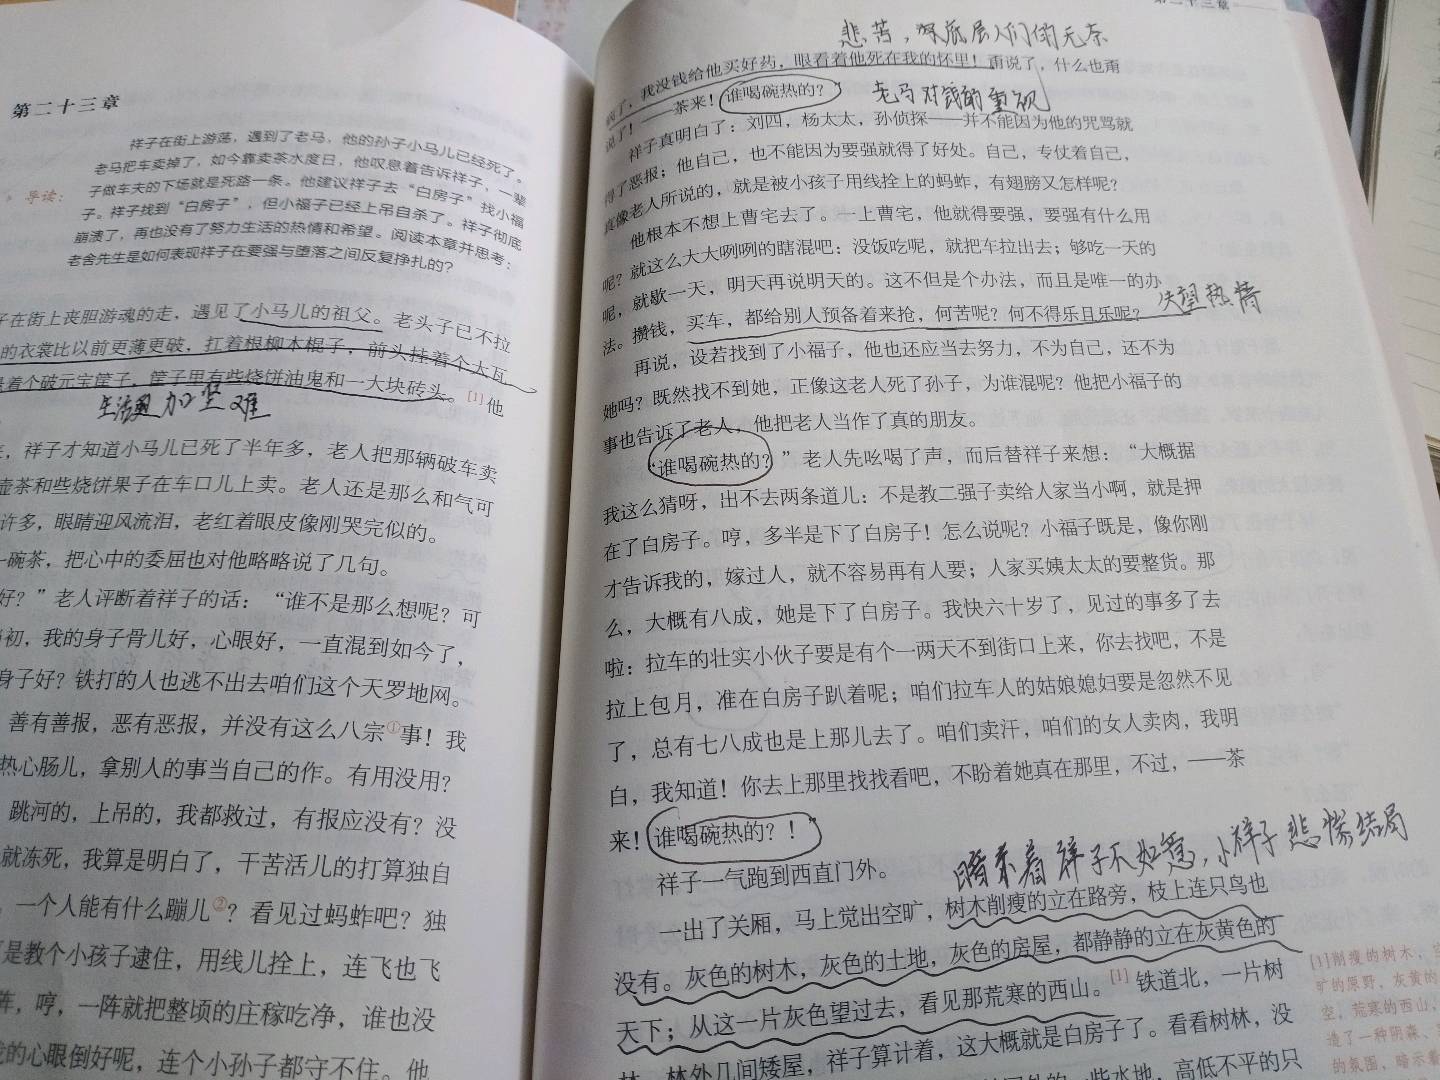 第二十三章
祥子在街上游荡，遇到了老马，他的孙子小马儿已经死了。
老马把车卖掉了，如今靠卖茶水度日，他叹息着告诉祥子，一辈
导读：
子做车夫的下场就是死路一条。他建议祥子去“白房子”找小福
子。祥子找到“白房子”，但小福子已经上吊自杀了。祥子彻底
崩溃了，再也没有了努力生活的热情和希望。阅读本章并思考：
老舍先生是如何表现祥子在要强与堕落之间反复挣扎的？
子在街上丧胆游魂的走，遇见了小马儿的祖父。老头子已不拉
的衣裳比以前更薄更破，扛着根柳木棍子，前头挂着个大瓦
着个破元宝筐子，筐子里有些烧饼油鬼和一大块砖头。[1]他
生活更加坚难
，祥子才知道小马儿已死了半年多，老人把那辆破车卖
壶茶和些烧饼果子在车口儿上卖。老人还是那么和气可
许多，眼睛迎风流泪，老红着眼皮像刚哭完似的。
一碗茶，把心中的委屈也对他略略说了几句。
好？”老人评断着祥子的话：“谁不是那么想呢？可
初，我的身子骨儿好，心眼好，一直混到如今了，
身子好？铁打的人也逃不出去咱们这个天罗地网。
善有善报，恶有恶报，并没有这么八宗①事！我
热心肠儿，拿别人的事当自己的作。有用没用？
跳河的，上吊的，我都救过，有报应没有？没
就冻死，我算是明白了，干苦活儿的打算独自
一个人能有什么蹦儿②？看见过蚂蚱吧？独
是教个小孩子逮住，用线儿拴上，连飞也飞
阵，哼，一阵就把整顷的庄稼吃净，谁也没
的心眼倒好呢，连个小孙子都守不住。他
第二十三章
悲苦，深底层人们的无奈
病了，我没钱给他买好药，眼看着他死在我的怀里！甭说了，什么也甭
说了！——茶来！谁喝碗热的？”
老马对钱的重视
祥子真明白了：刘四，杨太太，孙侦探——并不能因为他的咒骂就
得了恶报；他自己，也不能因为要强就得了好处。自己，专仗着自己，
真像老人所说的，就是被小孩子用线拴上的蚂蚱，有翅膀又怎样呢？
他根本不想上曹宅去了。一上曹宅，他就得要强，要强有什么用
呢？就这么大大咧咧的瞎混吧：没饭吃呢，就把车拉出去；够吃一天的
呢，就歇一天，明天再说明天的。这不但是个办法，而且是唯一的办
法。攒钱，买车，都给别人预备着来抢，何苦呢？何不得乐且乐呢？
失望热情
再说，设若找到了小福子，他也还应当去努力，不为自己，还不为
她吗？既然找不到她，正像这老人死了孙子，为谁混呢？他把小福子的
事也告诉了老人，他把老人当作了真的朋友。
“谁喝碗热的？”老人先吆喝了声，而后替祥子来想：“大概据
我这么猜呀，出不去两条道儿：不是教二强子卖给人家当小啊，就是押
在了白房子。哼，多半是下了白房子！怎么说呢？小福子既是，像你刚
才告诉我的，嫁过人，就不容易再有人要；人家买姨太太的要整货。那
么，大概有八成，她是下了白房子。我快六十岁了，见过的事多了去
啦：拉车的壮实小伙子要是有个一两天不到街口上来，你去找吧，不是
拉上包月，准在白房子趴着呢；咱们拉车人的姑娘媳妇要是忽然不见
了，总有七八成也是上那儿去了。咱们卖汗，咱们的女人卖肉，我明
白，我知道！你去上那里找找看吧，不盼着她真在那里，不过，——茶
来！谁喝碗热的？！”
暗示着祥子不如意，小祥子悲惨结局
祥子一气跑到西直门外。
一出了关厢，马上觉出空旷，树木削瘦的立在路旁，枝上连只鸟也
没有。灰色的树木，灰色的土地，灰色的房屋，都静静的立在灰黄色的
天下；从这一片灰色望过去，看见那荒寒的西山。[1]铁道北，一片树
林，林外几间矮屋，祥子算计着，这大概就是白房子了。看看树林，没
一些水地，高低不平的只
[1]削瘦的树木，空
旷的原野，灰黄的
空，荒寒的西山，
造了一种阴森、
的氛围，暗示着